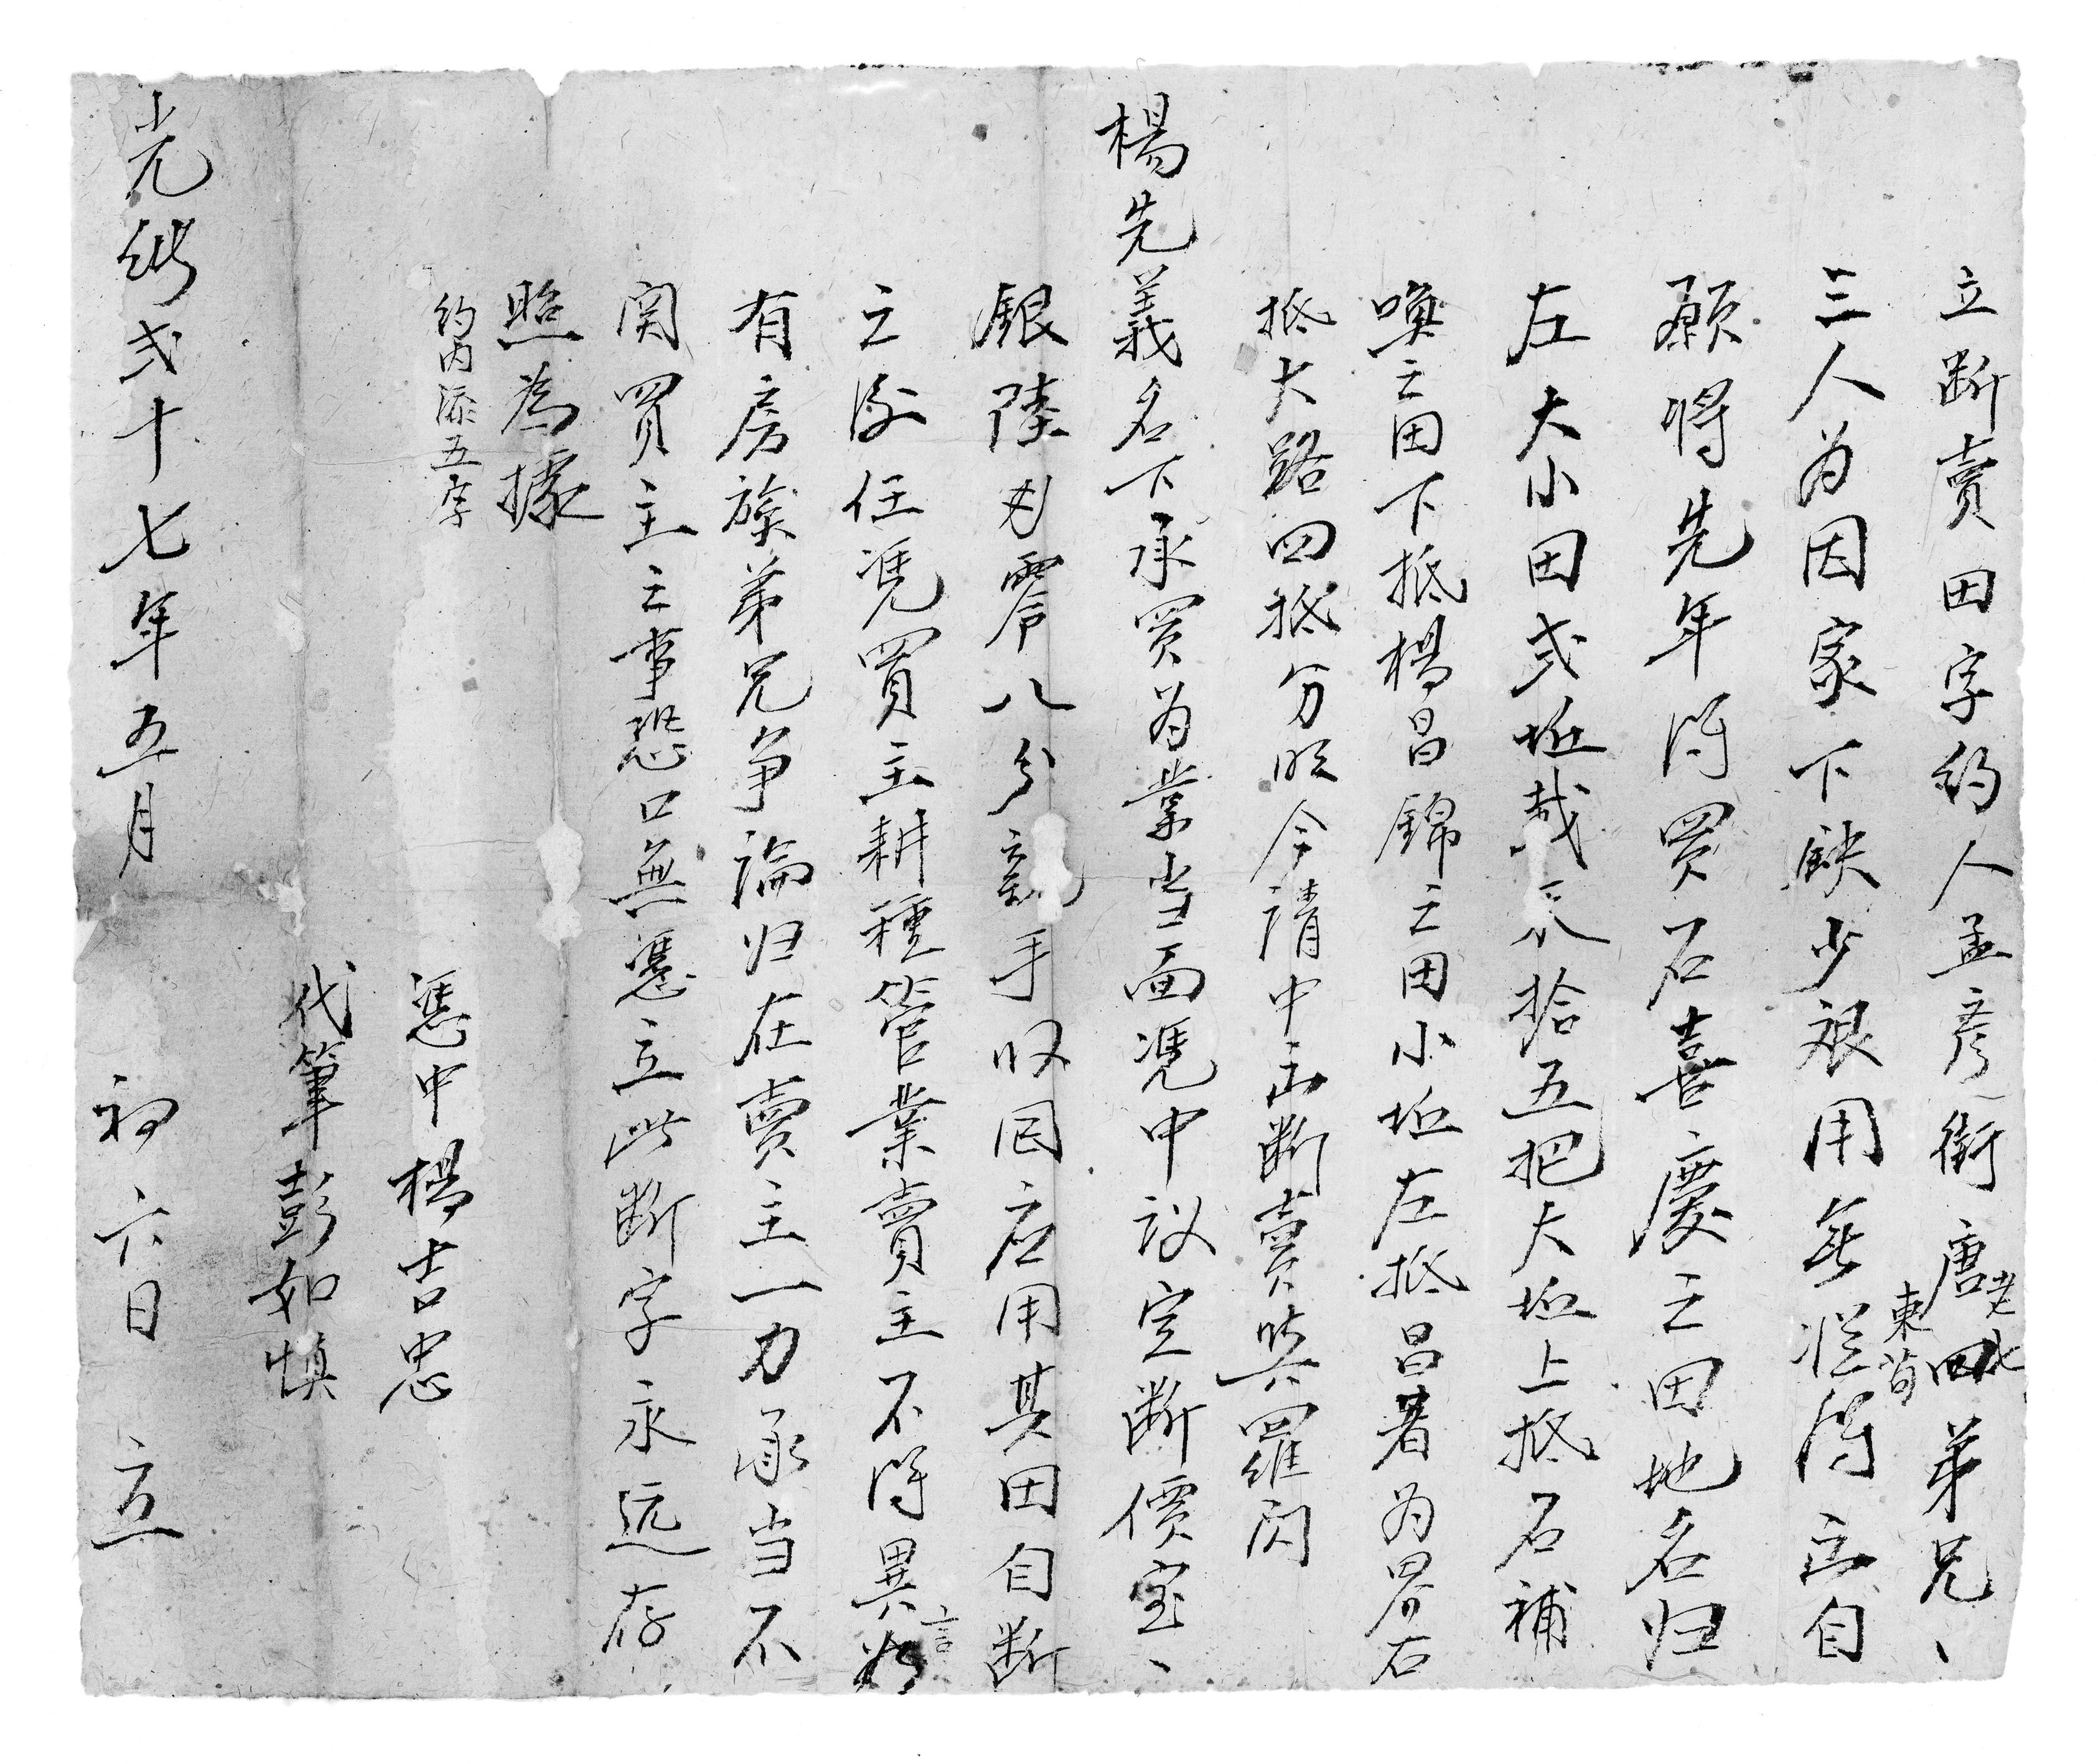 立断賣田字約人孟彦街唐老七四弟兄、
東苟
三人为因家下缺少艮用無從得出自
願將先年得買石喜慶之田地名归
左大小田弍坵栽禾八拾五把大坵上抵石補
喚之田下抵楊昌錦之田小坵左抵昌著为界石
抵大路四抵分明今請中出断賣與羅闪
楊先義名下承買为業当面凭中议定断價宝、
銀陸刄零八分親手收回应用其田自断
之後任凭買主耕種管業賣主不得異言如
有房族弟兄争論归在賣主一力承当不
関買主之事恐口無憑立此断字永远存
照為據
約内添五字
憑中楊吉忠
代筆彭如慎
光緒弍十七年五月初六日立